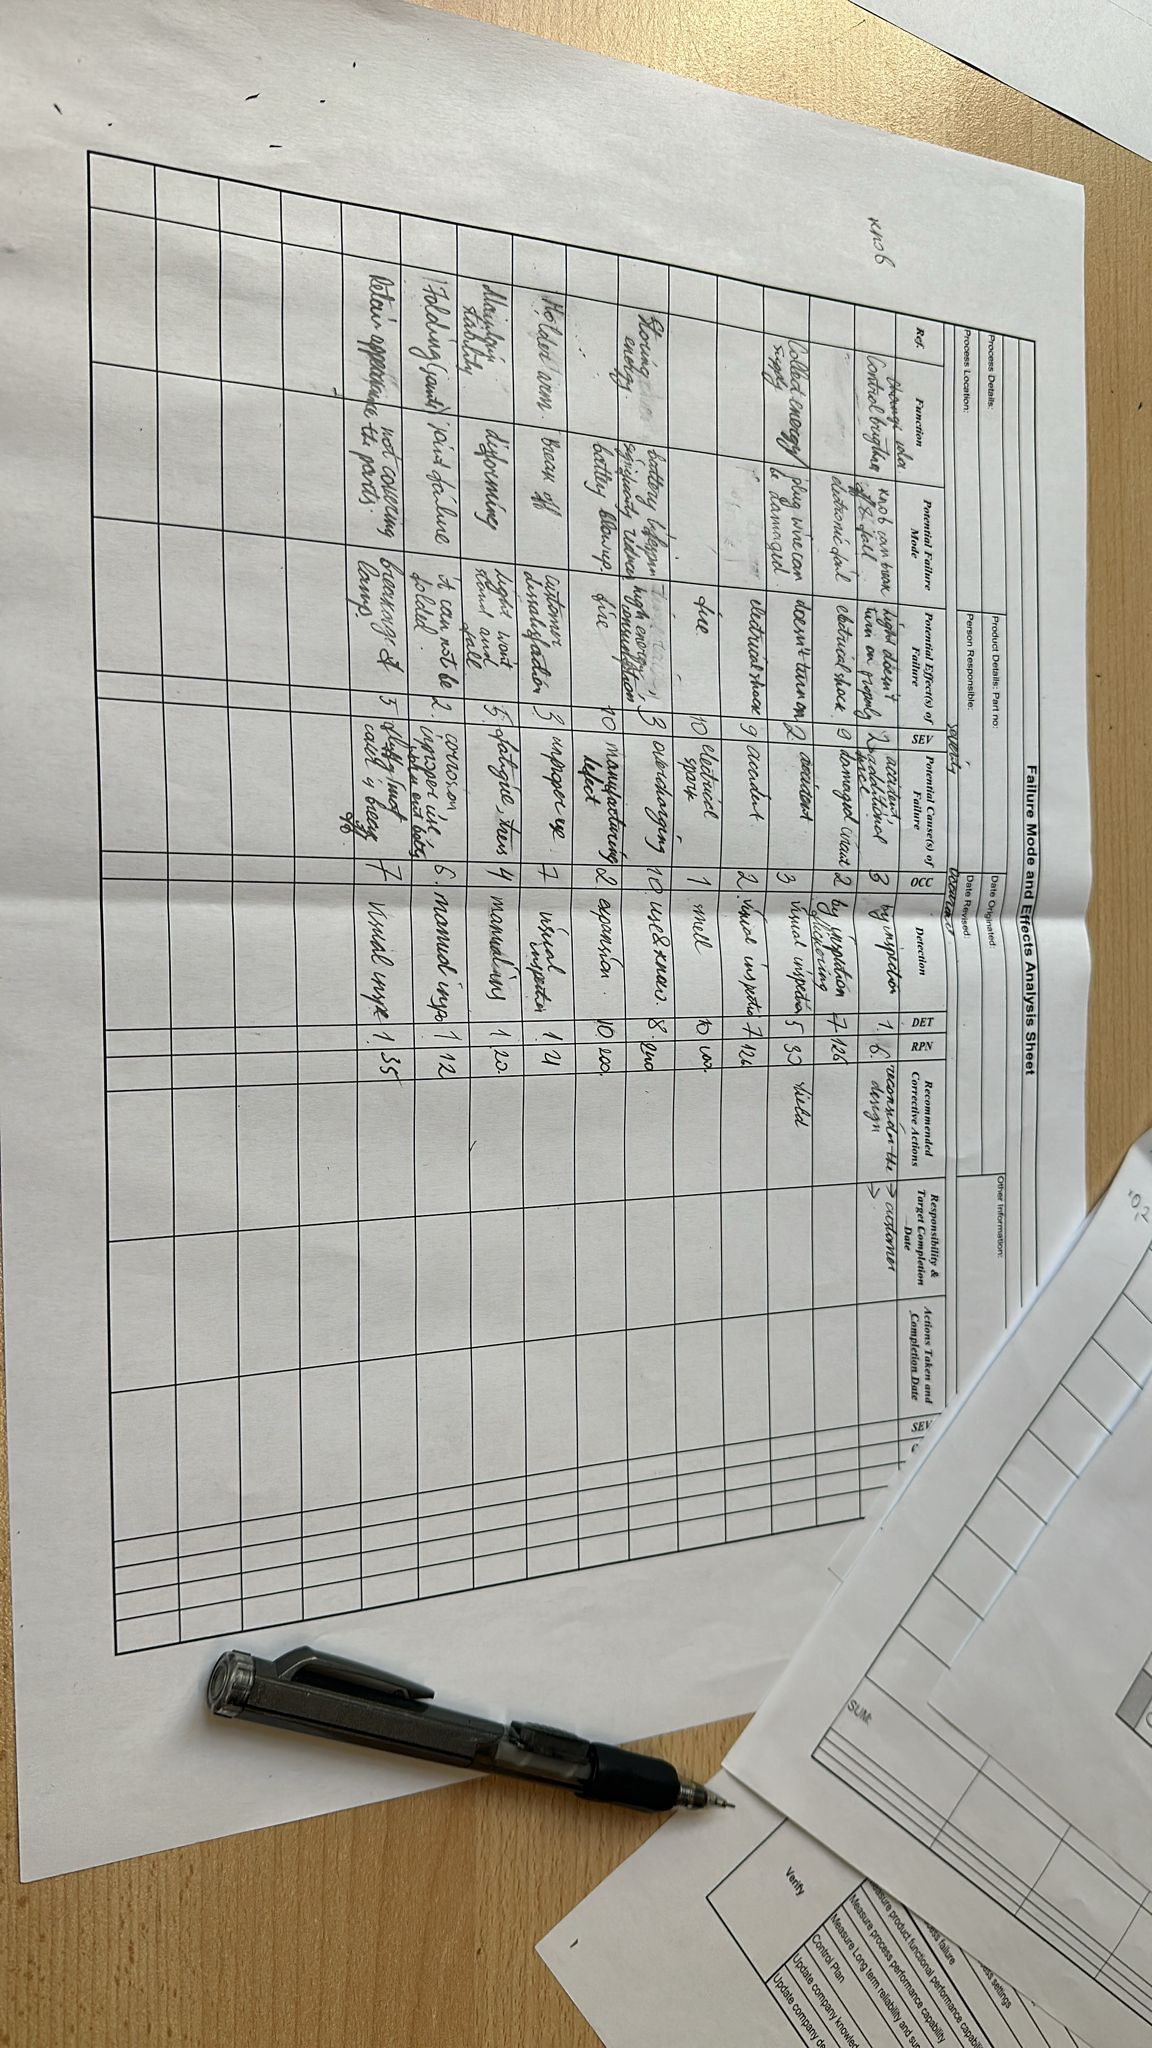 Failure Mode and Effects Analysis Sheet
Process Details: Product Details: Part no: Date Originated: Other Information:
Process Location: Person Responsible: Date Revised:
severity occurrence
Ref. Function Potential Failure Mode Potential Effect(s) of Failure SEV Potential Cause(s) of Failure OCC Detection DET RPN Recommended Corrective Actions Responsibility & Target Completion Date Actions Taken and Completion Date SEV
knob
Control knob can break off & fall light doesn't turn on properly 2 accident, additional force 3 by inspection 1 6 reconsider the design → customer
→
electronic fail electrical shock 9 damaged circuit 2 by inspection flickering 7 126
Collect energy/ supply plug wire can be damaged doesn't turn on 2 accident 3 visual inspection 5 30
electrical shock 9 accident 2 visual inspectio 7 126
fire 10 electrical spark 1 smell 10 100
Storing energy. battery lifespan significantly reduces high energy consumption 3 overcharging 10 use & know. 8 240
battery blowup. fire 10 manufacturing defect 2 expansion 10 200
Holder arm Break off customer dissatisfaction 3 improper use 7 visual inspection 1 21
Maintain stability disforming light won't stand and fall 5 fatigue, stress 4 manual ins 1 20
Folding (joints) joint failure it can not be folded 2 corrosion, inproper use, worn out bolts 6 manual inspe 1 12
Retain appearance not covering the parts breakage of lamp. 5 cover is break off 7 visual inspe 1 35
SUM:
Verify
ess settings
ess failure
asure product functional performance capabi
Measure process performance capability
Measure Long term reliability and su
Control Plan
Update company knowled
Update company de